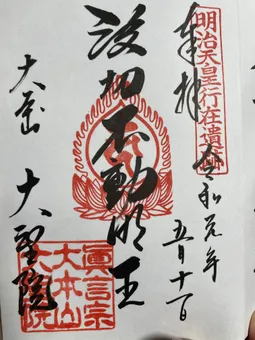 奉拝
明治天皇行在遺蹟
令和元年
五月十一日
波切不動明王
大本山
大聖院
眞言宗
大本山
大聖院